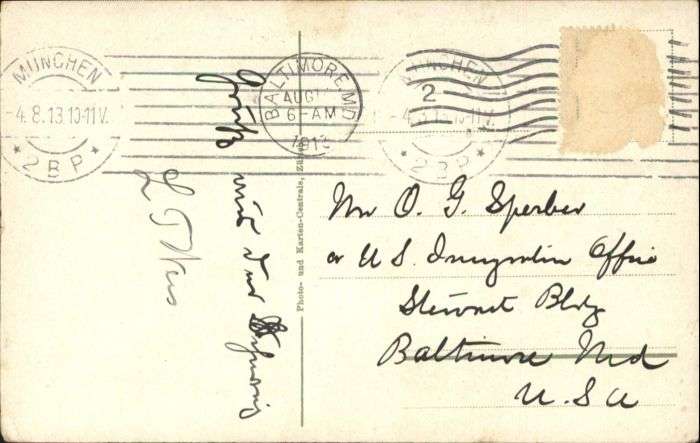 MÜNCHEN
-4.8.13.10-11V.
* 2BP *
BALTIMORE, MD.
AUG
6-AM
1913
MÜNCHEN
2
-4.8.13.10-11V.
* 2BP *
Photo- und Karten-Centrale, Zürich
Mr O. G. Sperber
U S. Immigration Office
Stewart Bldg
Baltimore Md
U. S A
Grüße